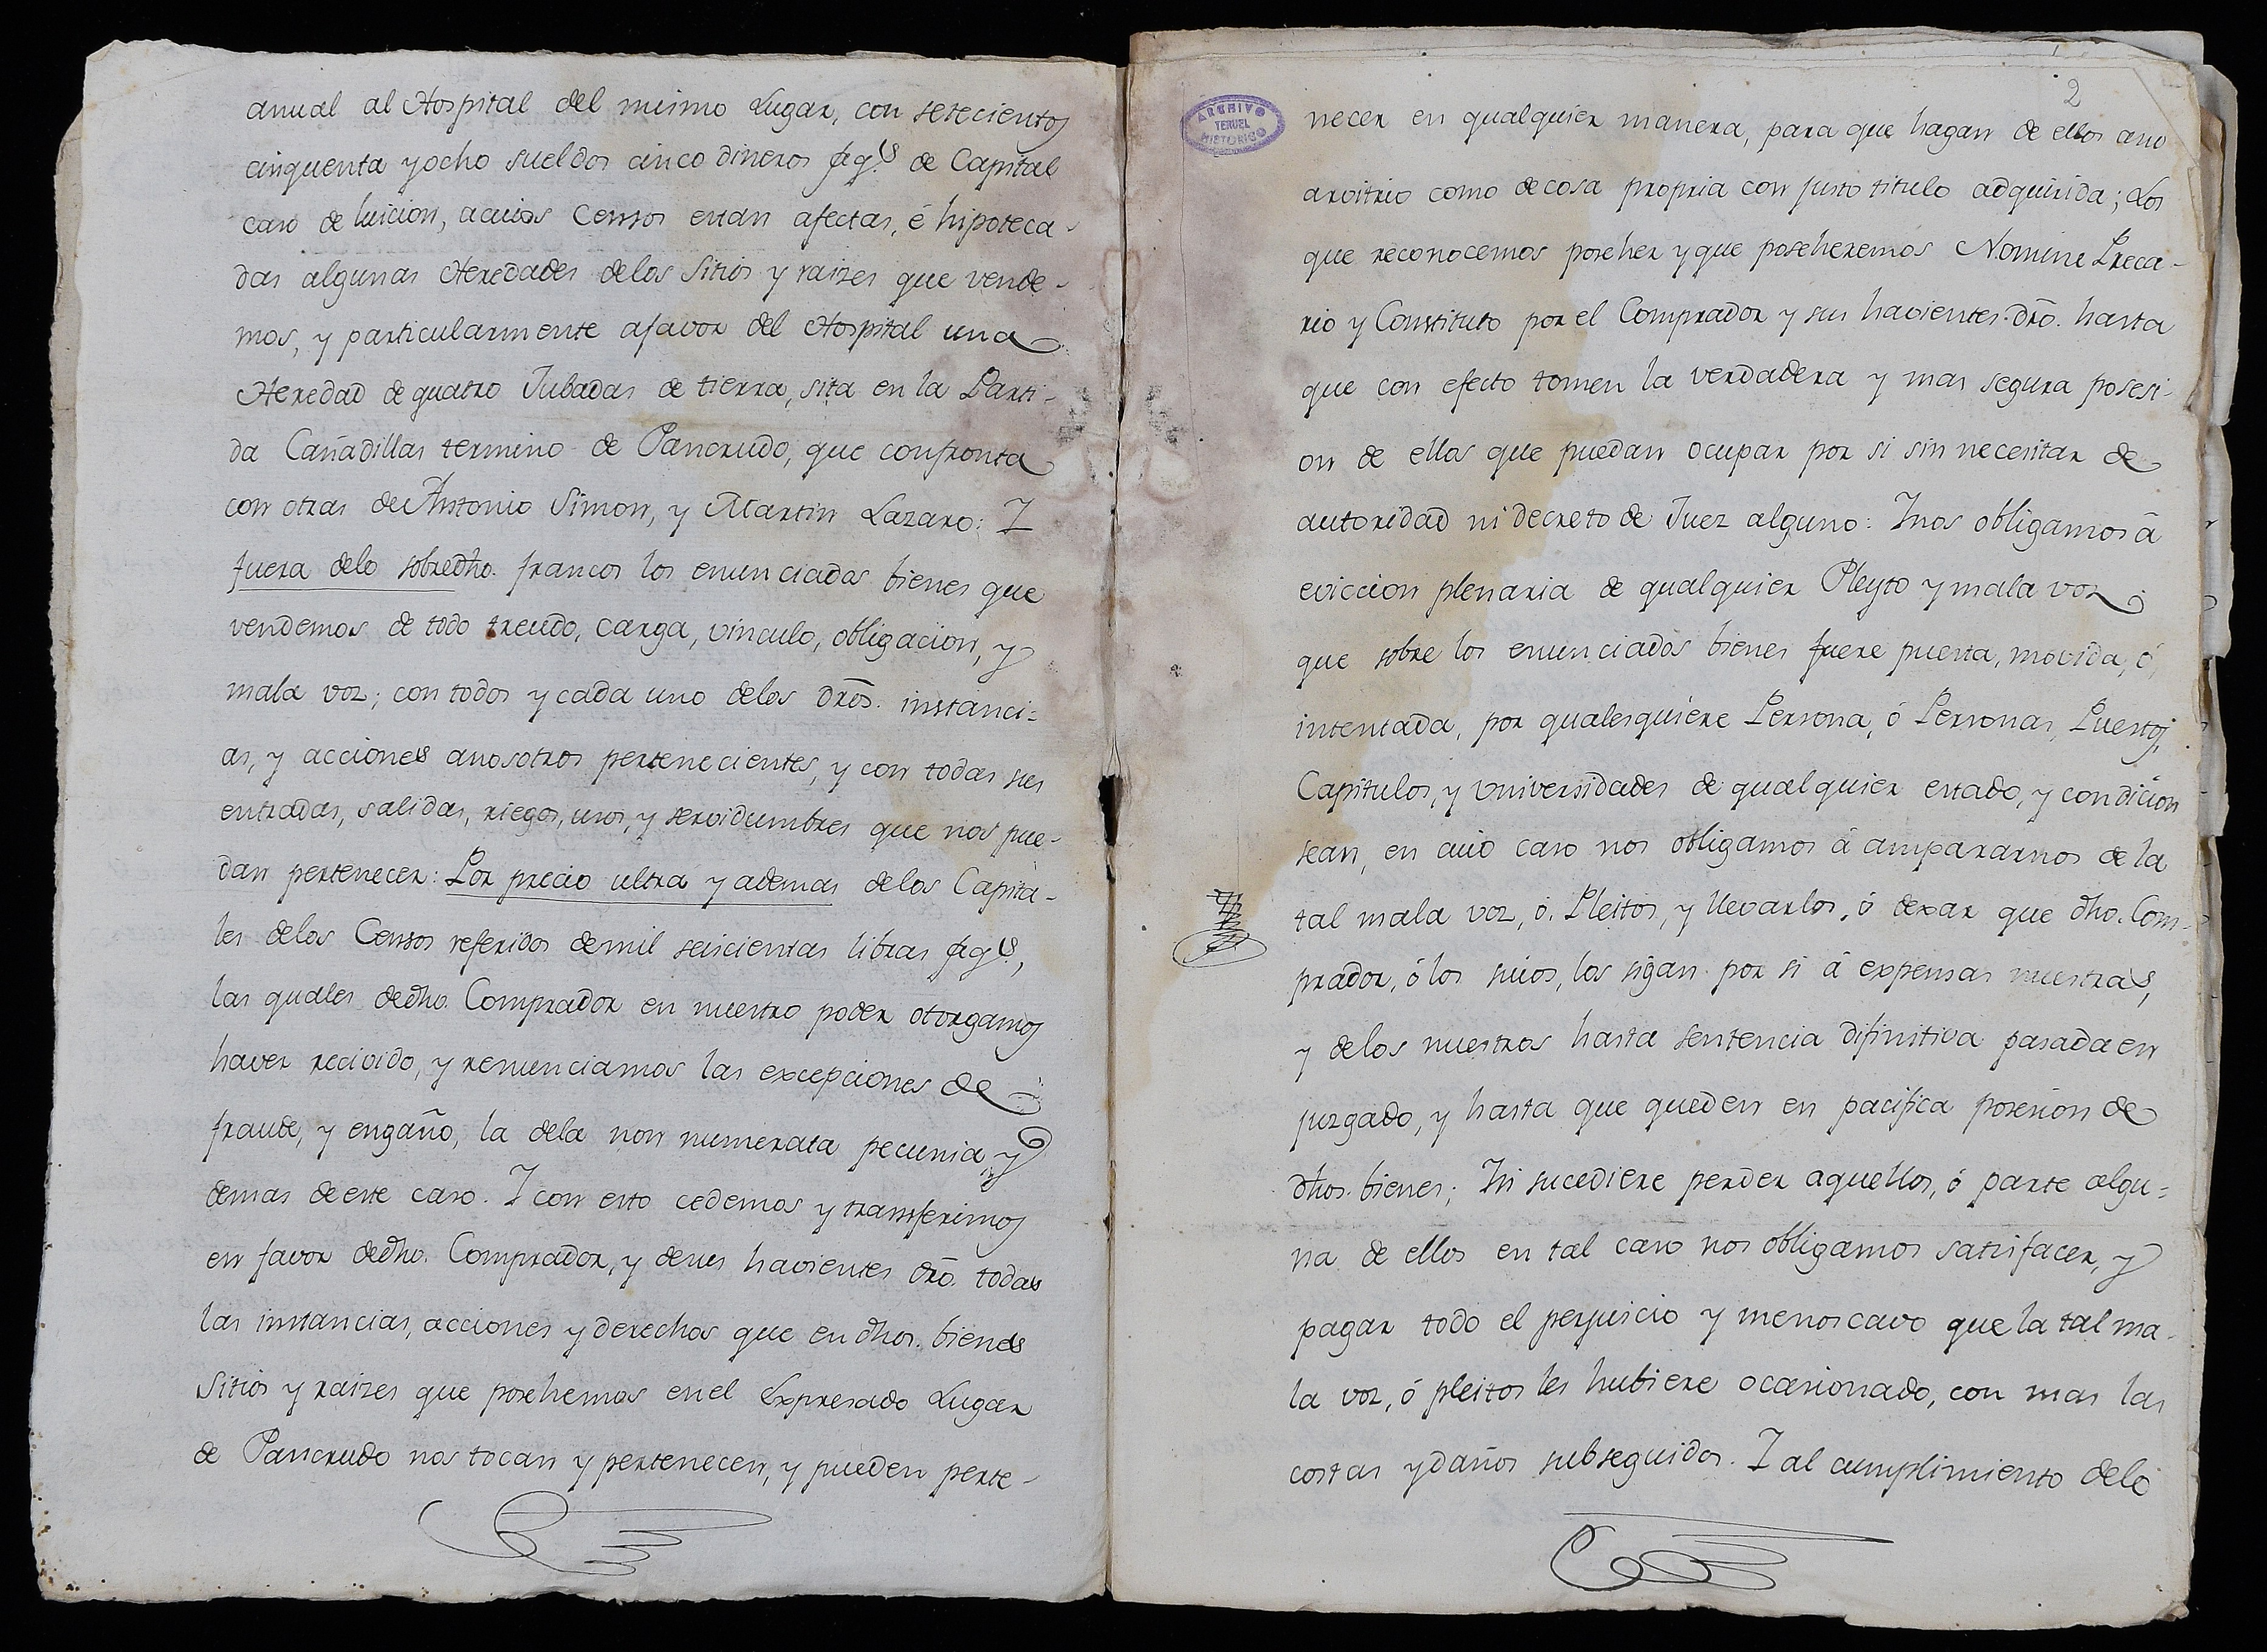 anual al Hospital del mismo Lugar, con setecientos
cinquenta y ocho sueldos cinco dineros jaq.s de Capital
caso de luicion, acuios Censos estan afectas, é hipoteca-
das algunas Heredades delos Sitios y raizes que vende-
mos, y particularmente afavor del Hospital una
Heredad de quatro Jubadas de tierra, sita en la Parti-
da Cañadillas termino de Pancrudo, que confronta
con otras de Antonio Simon, y Martin Lazaro: I
fuera delo sobredho. francos los enunciados bienes que
vendemos de todo treudo, carga, vinculo, obligacion, y
mala voz; con todos y cada uno delos dros. instanci=
as, y acciones anosotros pertenecientes, y con todas sus
entradas, salidas, riegos, usos, y servidumbres que nos pue-
dan pertenecer: Por precio ultra y ademas delos Capita-
les delos Censos referidos demil seiscientas libras jaq.s,
las quales dedho. Comprador en nuestro poder otorgamos
haver recivido, y renunciamos las excepciones de
fraude, y engaño, la dela non numerata pecunia, y
demas deeste caso. I con esto cedemos y transferimos
en favor dedho. Comprador, y desus havientes dro. todas
las instancias, acciones y derechos que en dhos. bienes
Sitios y raizes que posehemos enel Expresado Lugar
de Pancrudo nos tocan y pertenecen, y pueden perte-
2
ARCHIVO
TERUEL
HISTORICO
necer en qualquier manera, para que hagan de ellos asu
arvitrio como decosa propria con justo titulo adquirida; Los
que reconocemos poseher y que poseheremos Nomine Preca-
rio y Constituto por el Comprador y sus havientes dro. hasta
que con efecto tomen la verdadera y mas segura posesi-
on de ellos que puedan ocupar por si sin necesitar de
autoridad ni decreto de Juez alguno: Inos obligamos á
eviccion plenaria de qualquier Pleyto y mala voz
que sobre los enunciados bienes fuere puesta, movida, ó
intentada, por qualesquiere Persona, ó Personas, Puestos,
Capitulos, y Universidades de qualquier estado, y condicion
sean, en cuio caso nos obligamos á ampararnos de la
tal mala voz, ó Pleitos, y llevarlos, ó dexar que dho. Com-
prador, ó los suios, los sigan por si á expensas nuestras,
y delos nuestros hasta sentencia difinitiva pasada en
juzgado, y hasta que queden en pacifica posesion de
dhos. bienes; Isi sucediere perder aquellos, ó parte algu=
na de ellos en tal caso nos obligamos satisfacer, y
pagar todo el perjuicio y menoscavo que la tal ma-
la voz, ó pleitos les hubiere ocasionado, con mas las
costas y daños subseguidos. I al cumplimiento delo